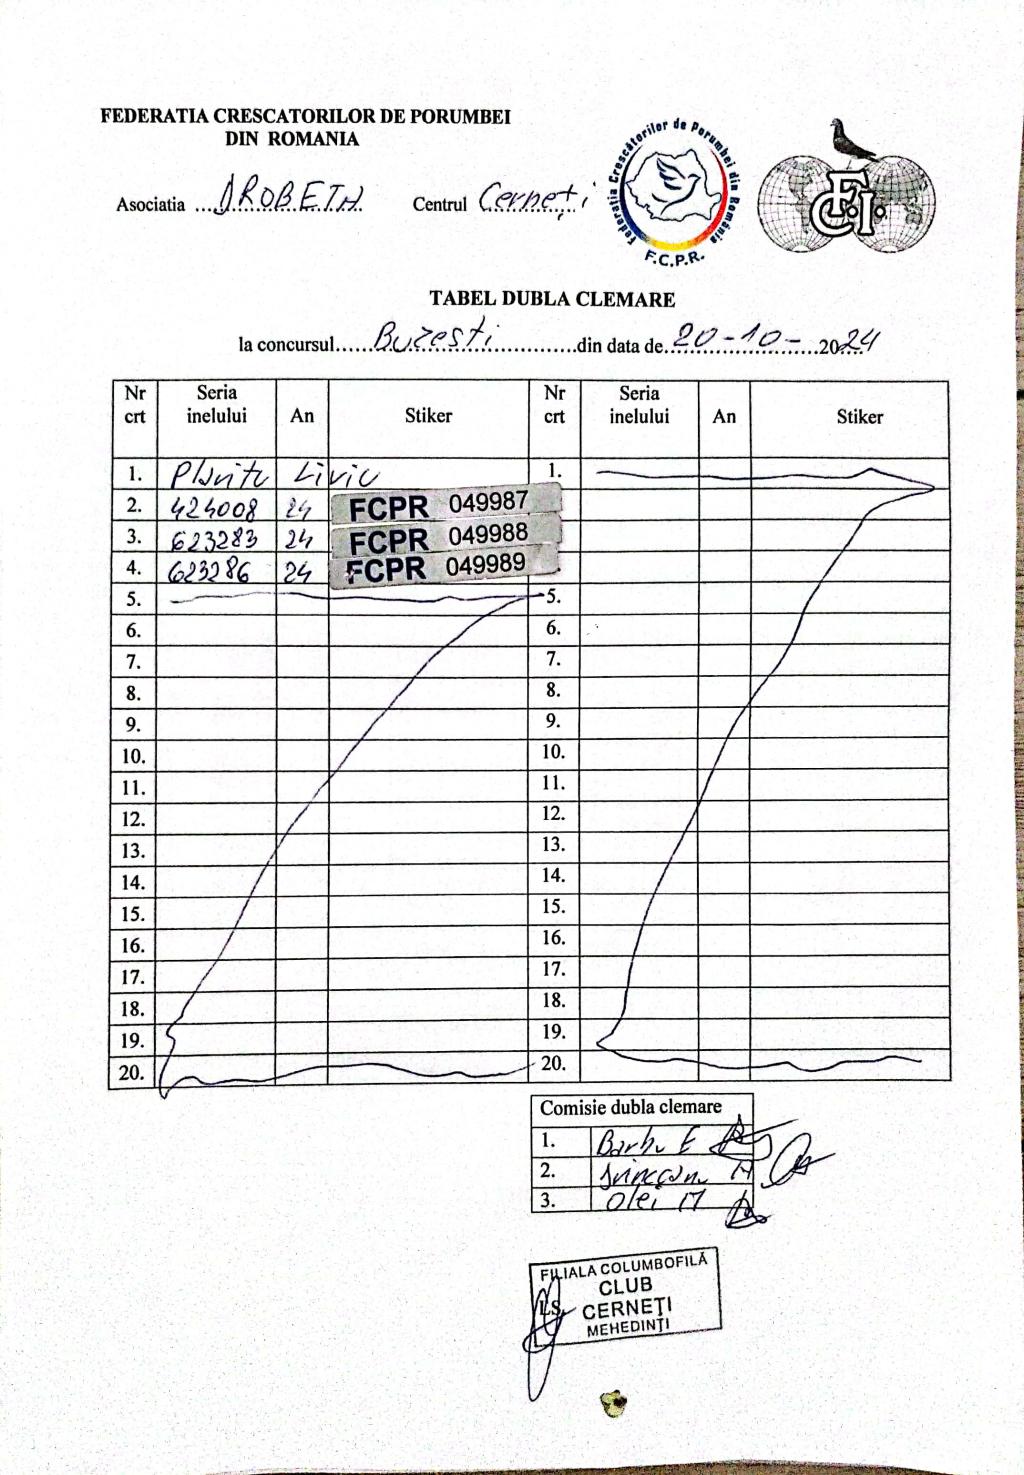 FEDERATIA CRESCATORILOR DE PORUMBEI
DIN ROMANIA
Asociatia ...DROBETA... Centrul Cernești
Federația Crescătorilor de Porumbei din România
F.C.P.R.
F.C.I.
TABEL DUBLA CLEMARE
la concursul......Buzesti......din data de 20-10-....2024
Nr crt Seria inelului An Stiker Nr crt Seria inelului An Stiker
1. Liviu 1.
2. 424008 24 FCPR 049987
3. 623283 24 FCPR 049988
4. 623286 24 FCPR 049989
5. 5.
6. 6.
7. 7.
8. 8.
9. 9.
10. 10.
11. 11.
12. 12.
13. 13.
14. 14.
15. 15.
16. 16.
17. 17.
18. 18.
19. 19.
20. 20.
Comisie dubla clemare
1. Barbu E
2.
3. Olei M
FILIALA COLUMBOFILĂ
CLUB
L.S. CERNEȚI
MEHEDINȚI